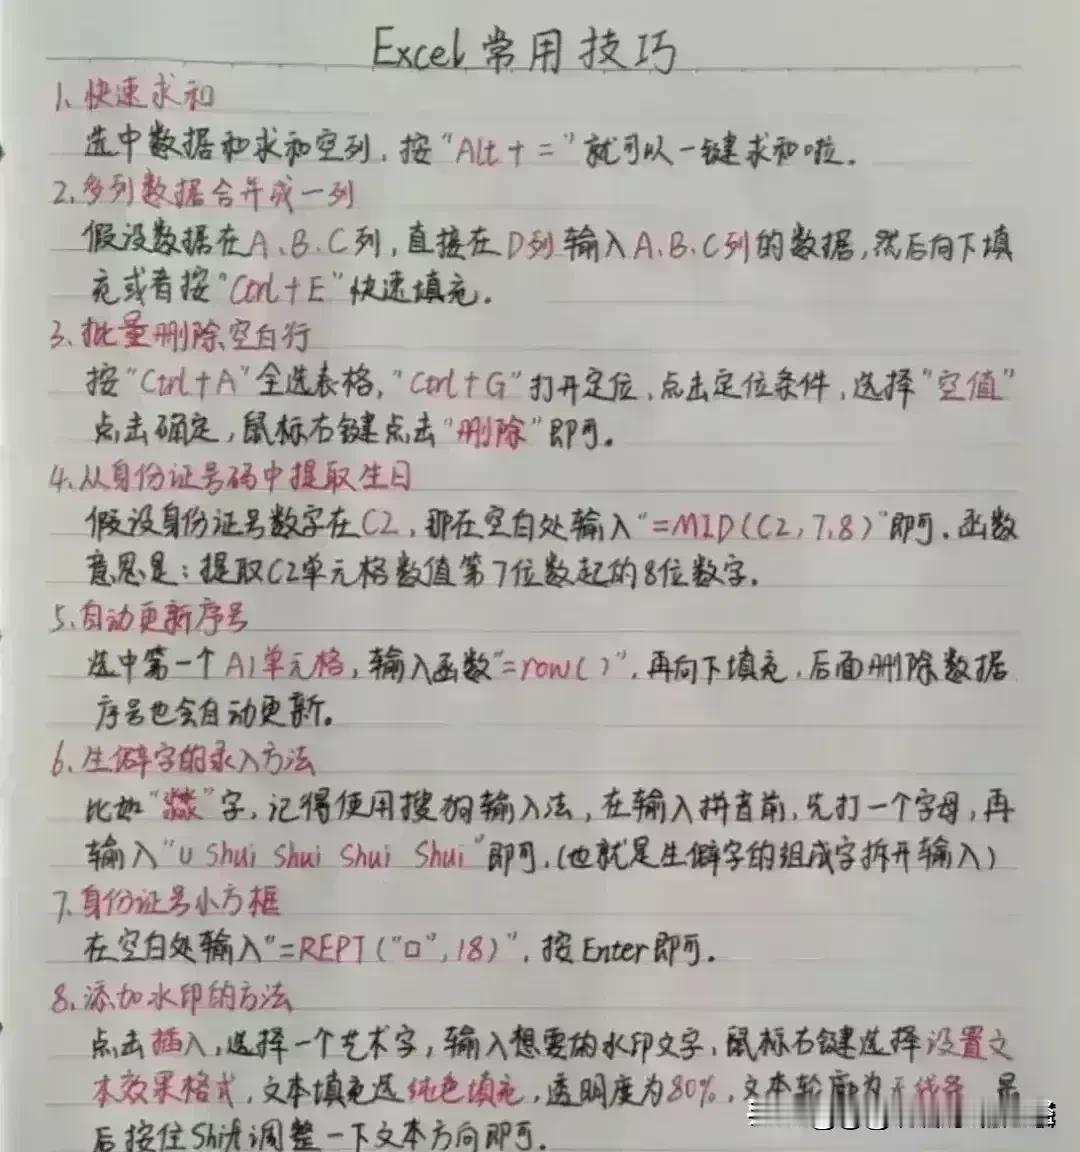 Excel常用技巧
1、快速求和
选中数据和求和空列，按"Alt+="就可以一键求和啦。
2、多列数据合并成一列
假设数据在A、B、C列，直接在D列输入A、B、C列的数据，然后向下填
充或者按"Ctrl+E"快速填充。
3、批量删除空白行
按"Ctrl+A"全选表格，"Ctrl+G"打开定位，点击定位条件，选择"空值"
点击确定，鼠标右键点击"删除"即可。
4、从身份证号码中提取生日
假设身份证号数字在C2，那在空白处输入"=MID(C2,7,8)"即可。函数
意思是：提取C2单元格数值第7位数起的8位数字。
5、自动更新序号
选中第一个A1单元格，输入函数"=row()"，再向下填充，后面删除数据
序号也会自动更新。
6、生僻字的录入方法
比如"㵘"字，记得使用搜狗输入法，在输入拼音前，先打一个字母，再
输入"U Shui Shui Shui Shui"即可。(也就是生僻字的组成字拆开输入)
7、身份证号小方框
在空白处输入"=REPT("□",18)"，按Enter即可。
8、添加水印的方法
点击插入，选择一个艺术字，输入想要的水印文字，鼠标右键选择设置文
本效果格式，文本填充选纯色填充，透明度为80%，文本轮廓为无线条，最
后按住Shift调整一下文本方向即可。